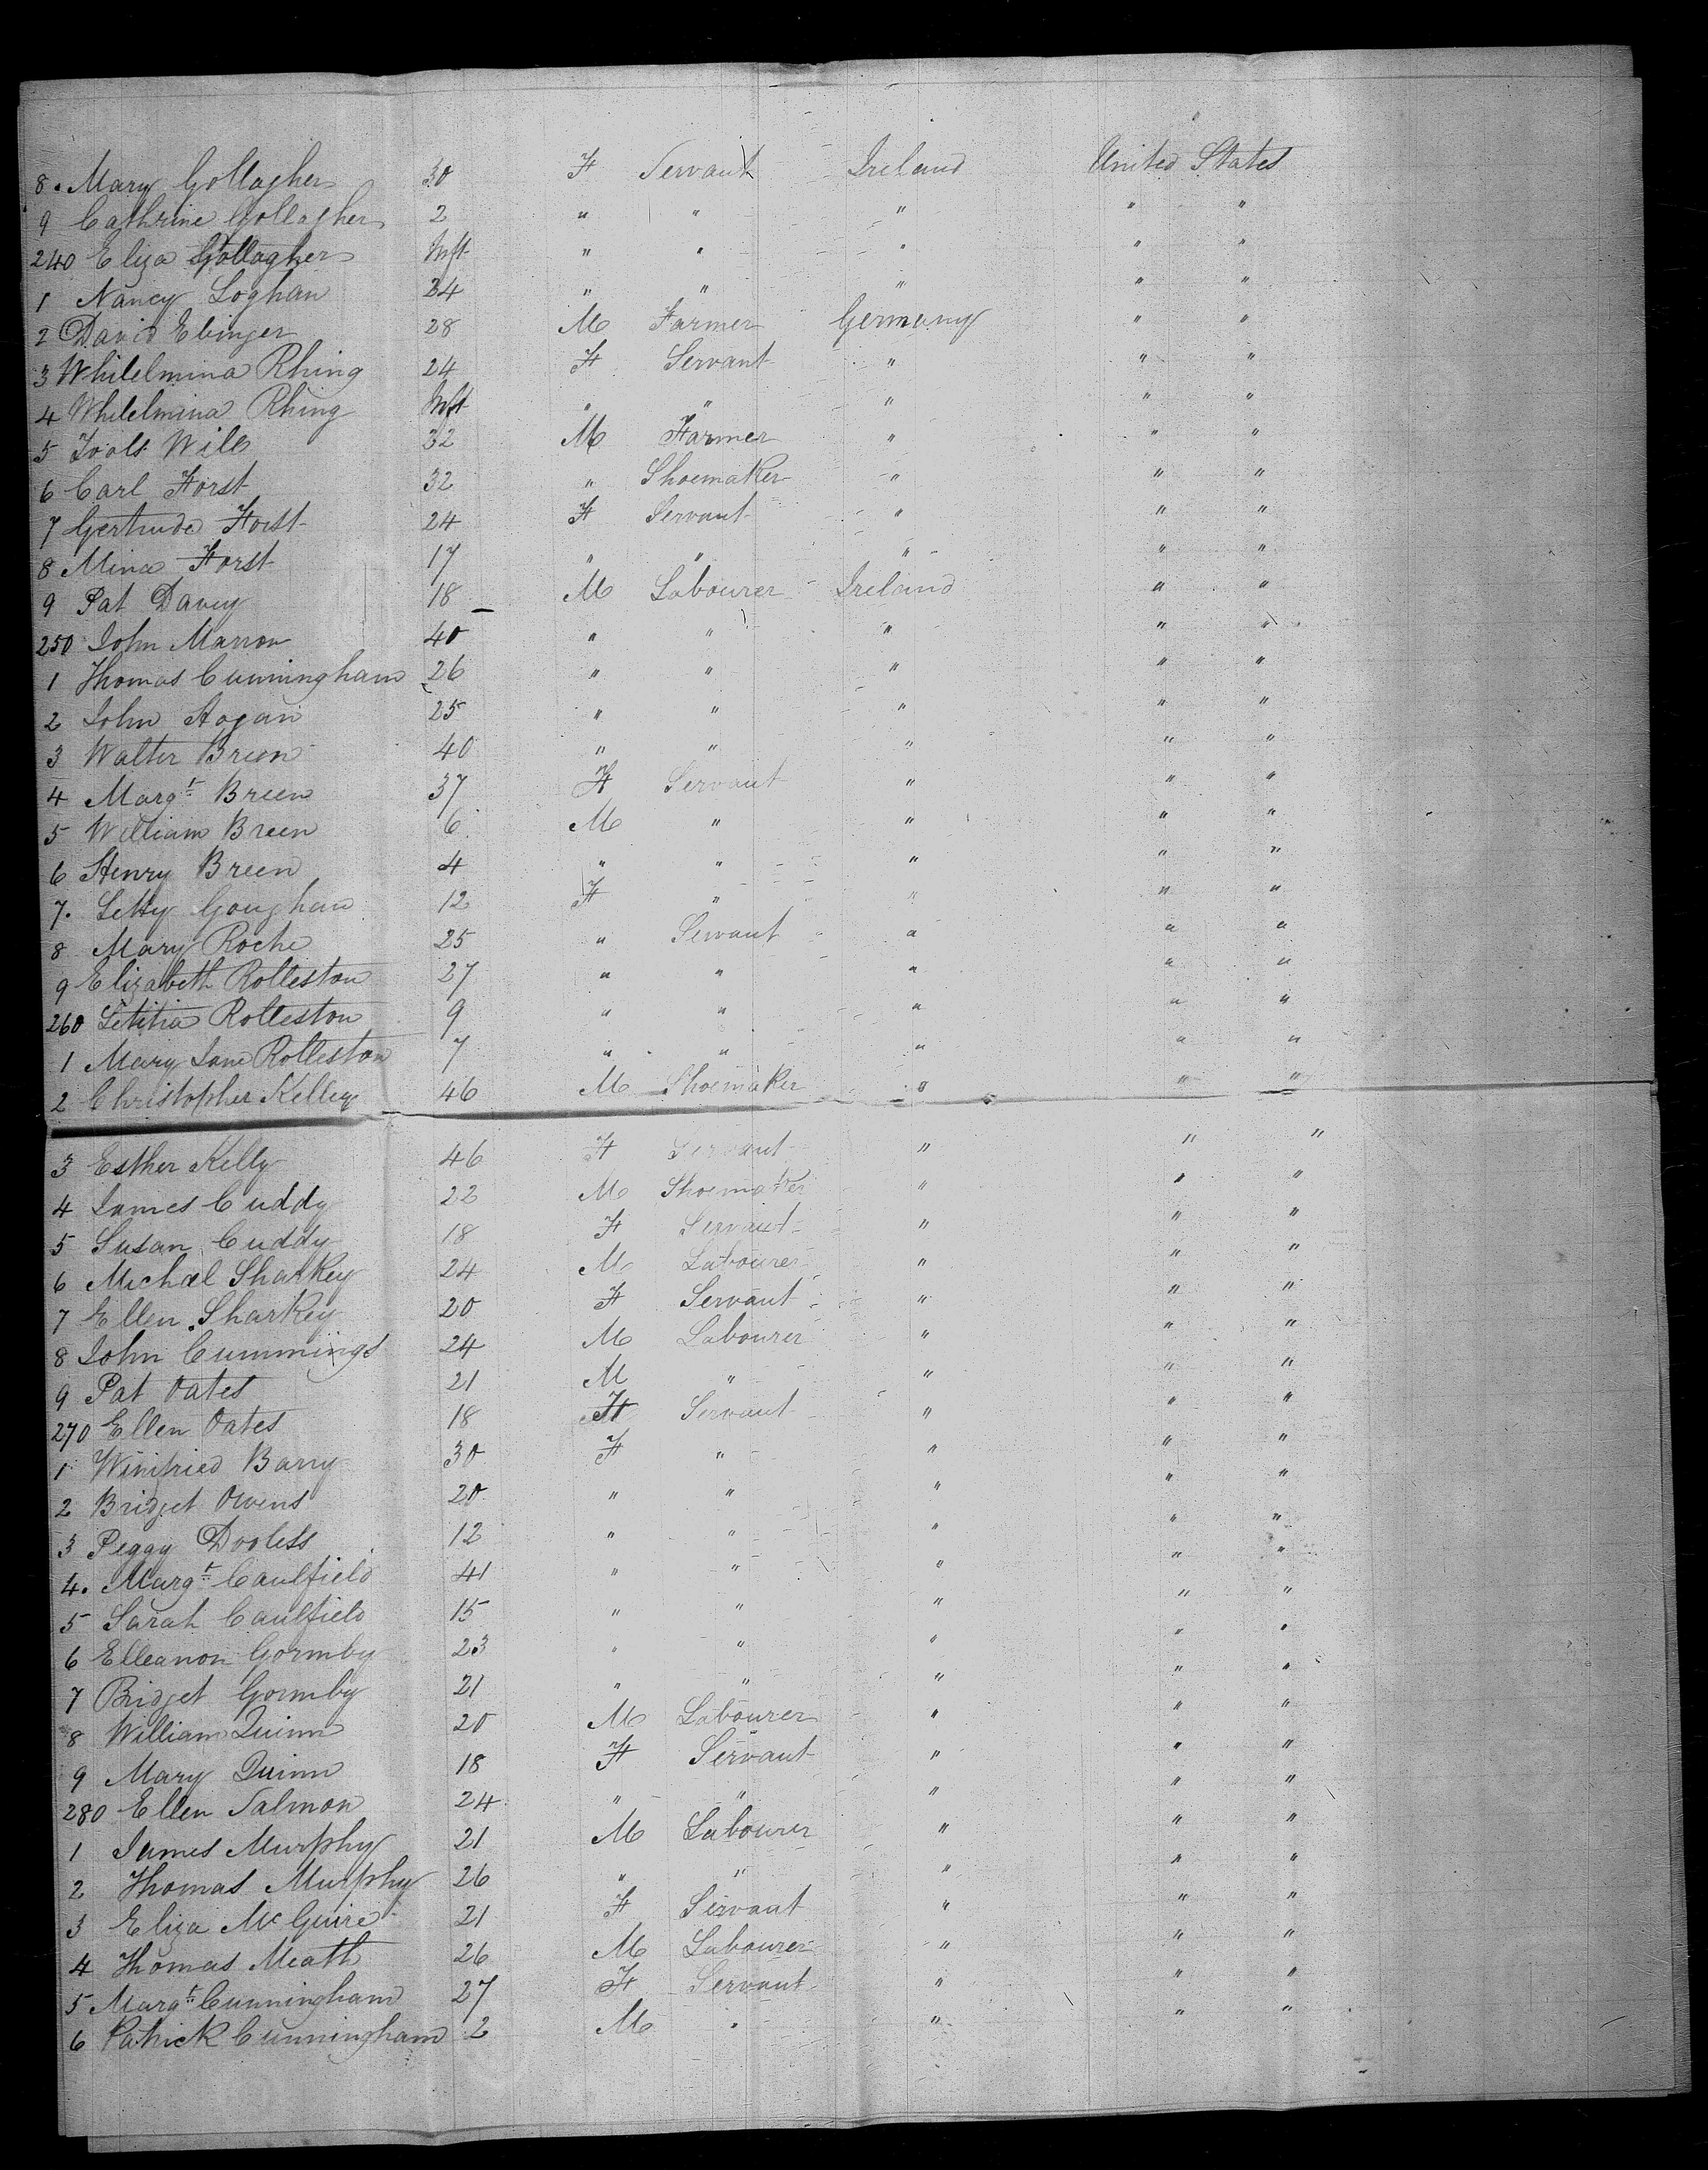 8. Mary Gollagher 30 F Servant Ireland United States
9 Cathrine Gollagher 2 " " " " "
240 Eliza Gollagher Inft " " " " "
1 Nancy Loghan 24 " " " " "
2 David Ebinger 28 M Farmer Germany " "
3 Whilelmina Rhing 24 F Servant " " "
4 Whilelmina Rhing Inft " " " " "
5 Will 32 M Farmer " " "
6 Carl Forst 32 " Shoemaker " " "
7 Gertrude Forst 24 F Servant " " "
8 Mina Forst 17 " " " " "
9 Pat Davey 18 M Labourer Ireland " "
250 John Marron 40 " " " " "
1 Thomas Cunningham 26 " " " " "
2 John Hogan 25 " " " " "
3 Walter Breen 40 " " " " "
4 Margt Breen 37 F Servant " " "
5 William Breen 6 M " " " "
6 Henry Breen 4 " " " " "
7. Letty Goughan 12 F " " " "
8 Mary Roche 25 " Servant " " "
9 Elizabeth Rolleston 27 " " " " "
260 Letitia Rolleston 9 " " " " "
1 Mary Jane Rolleston 7 " " " " "
2 Christopher Kelley 46 M Shoemaker " " "
3 Esther Kelly 46 F Servant " " "
4 James Cuddy 22 M Shoemaker " " "
5 Susan Cuddy 18 F Servant " " "
6 Michael Sharkey 24 M Labourer " " "
7 Ellen Sharkey 20 F Servant " " "
8 John Cummings 24 M Labourer " " "
9 Pat Oates 21 M " " " "
270 Ellen Oates 18 F Servant " " "
1 Winifried Barry 30 F " " " "
2 Bridget Owens 20 " " " " "
3 Peggy Dooless 12 " " " " "
4. Margt Caulfield 41 " " " " "
5 Sarah Caulfield 15 " " " " "
6 Elleanon Gormby 23 " " " " "
7 Bridget Gormby 21 " " " " "
8 William Quinn 20 M Labourer " " "
9 Mary Quinn 18 F Servant " " "
280 Ellen Salmon 24 " " " " "
1 James Murphy 21 M Labourer " " "
2 Thomas Murphy 26 " " " " "
3 Eliza McGuire 21 F Servant " " "
4 Thomas Meath 26 M Labourer " " "
5 Margt Cunningham 27 F Servant " " "
6 Patrick Cunningham 2 M " " " "